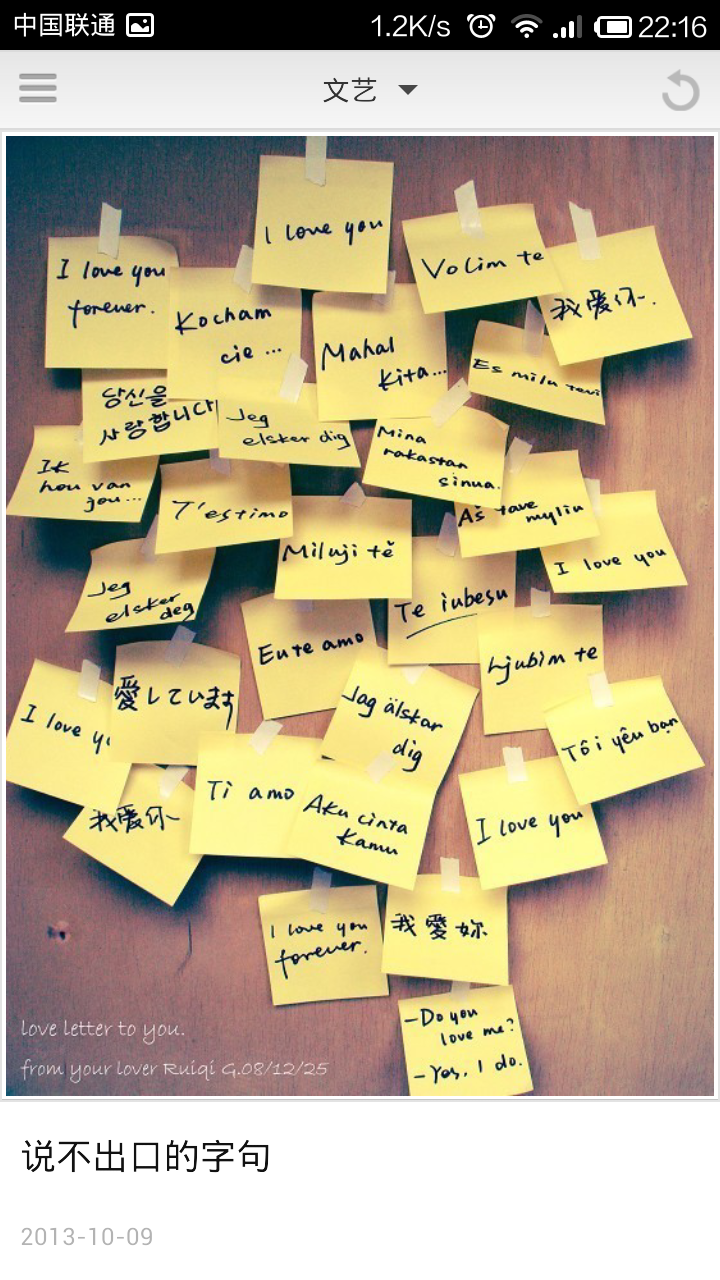 中国联通
1.2K/s
22:16
文艺
I love you
I love you
forever.
Kocham
cie ...
Volim te
我爱你.
Mahal
kita...
Es milu tevi
당신을
사랑합니다
Jeg
elsker dig
Mina
rakastan
sinua.
Ik
hou van
jou...
T'estimo
Aš tave
myliu
Miluji tě
I love you
Jeg
elsker
deg
Te iubesu
Eu te amo
Ljubim te
I love y
愛しています
Jag älskar
dig
Tôi yêu bạn
Ti amo
Aku cinta
Kamu
I love you
我爱你
I love you
forever.
我愛妳
-Do you
love me?
-Yes, I do.
love letter to you.
from your lover Ruiqi G.08/12/25
说不出口的字句
2013-10-09